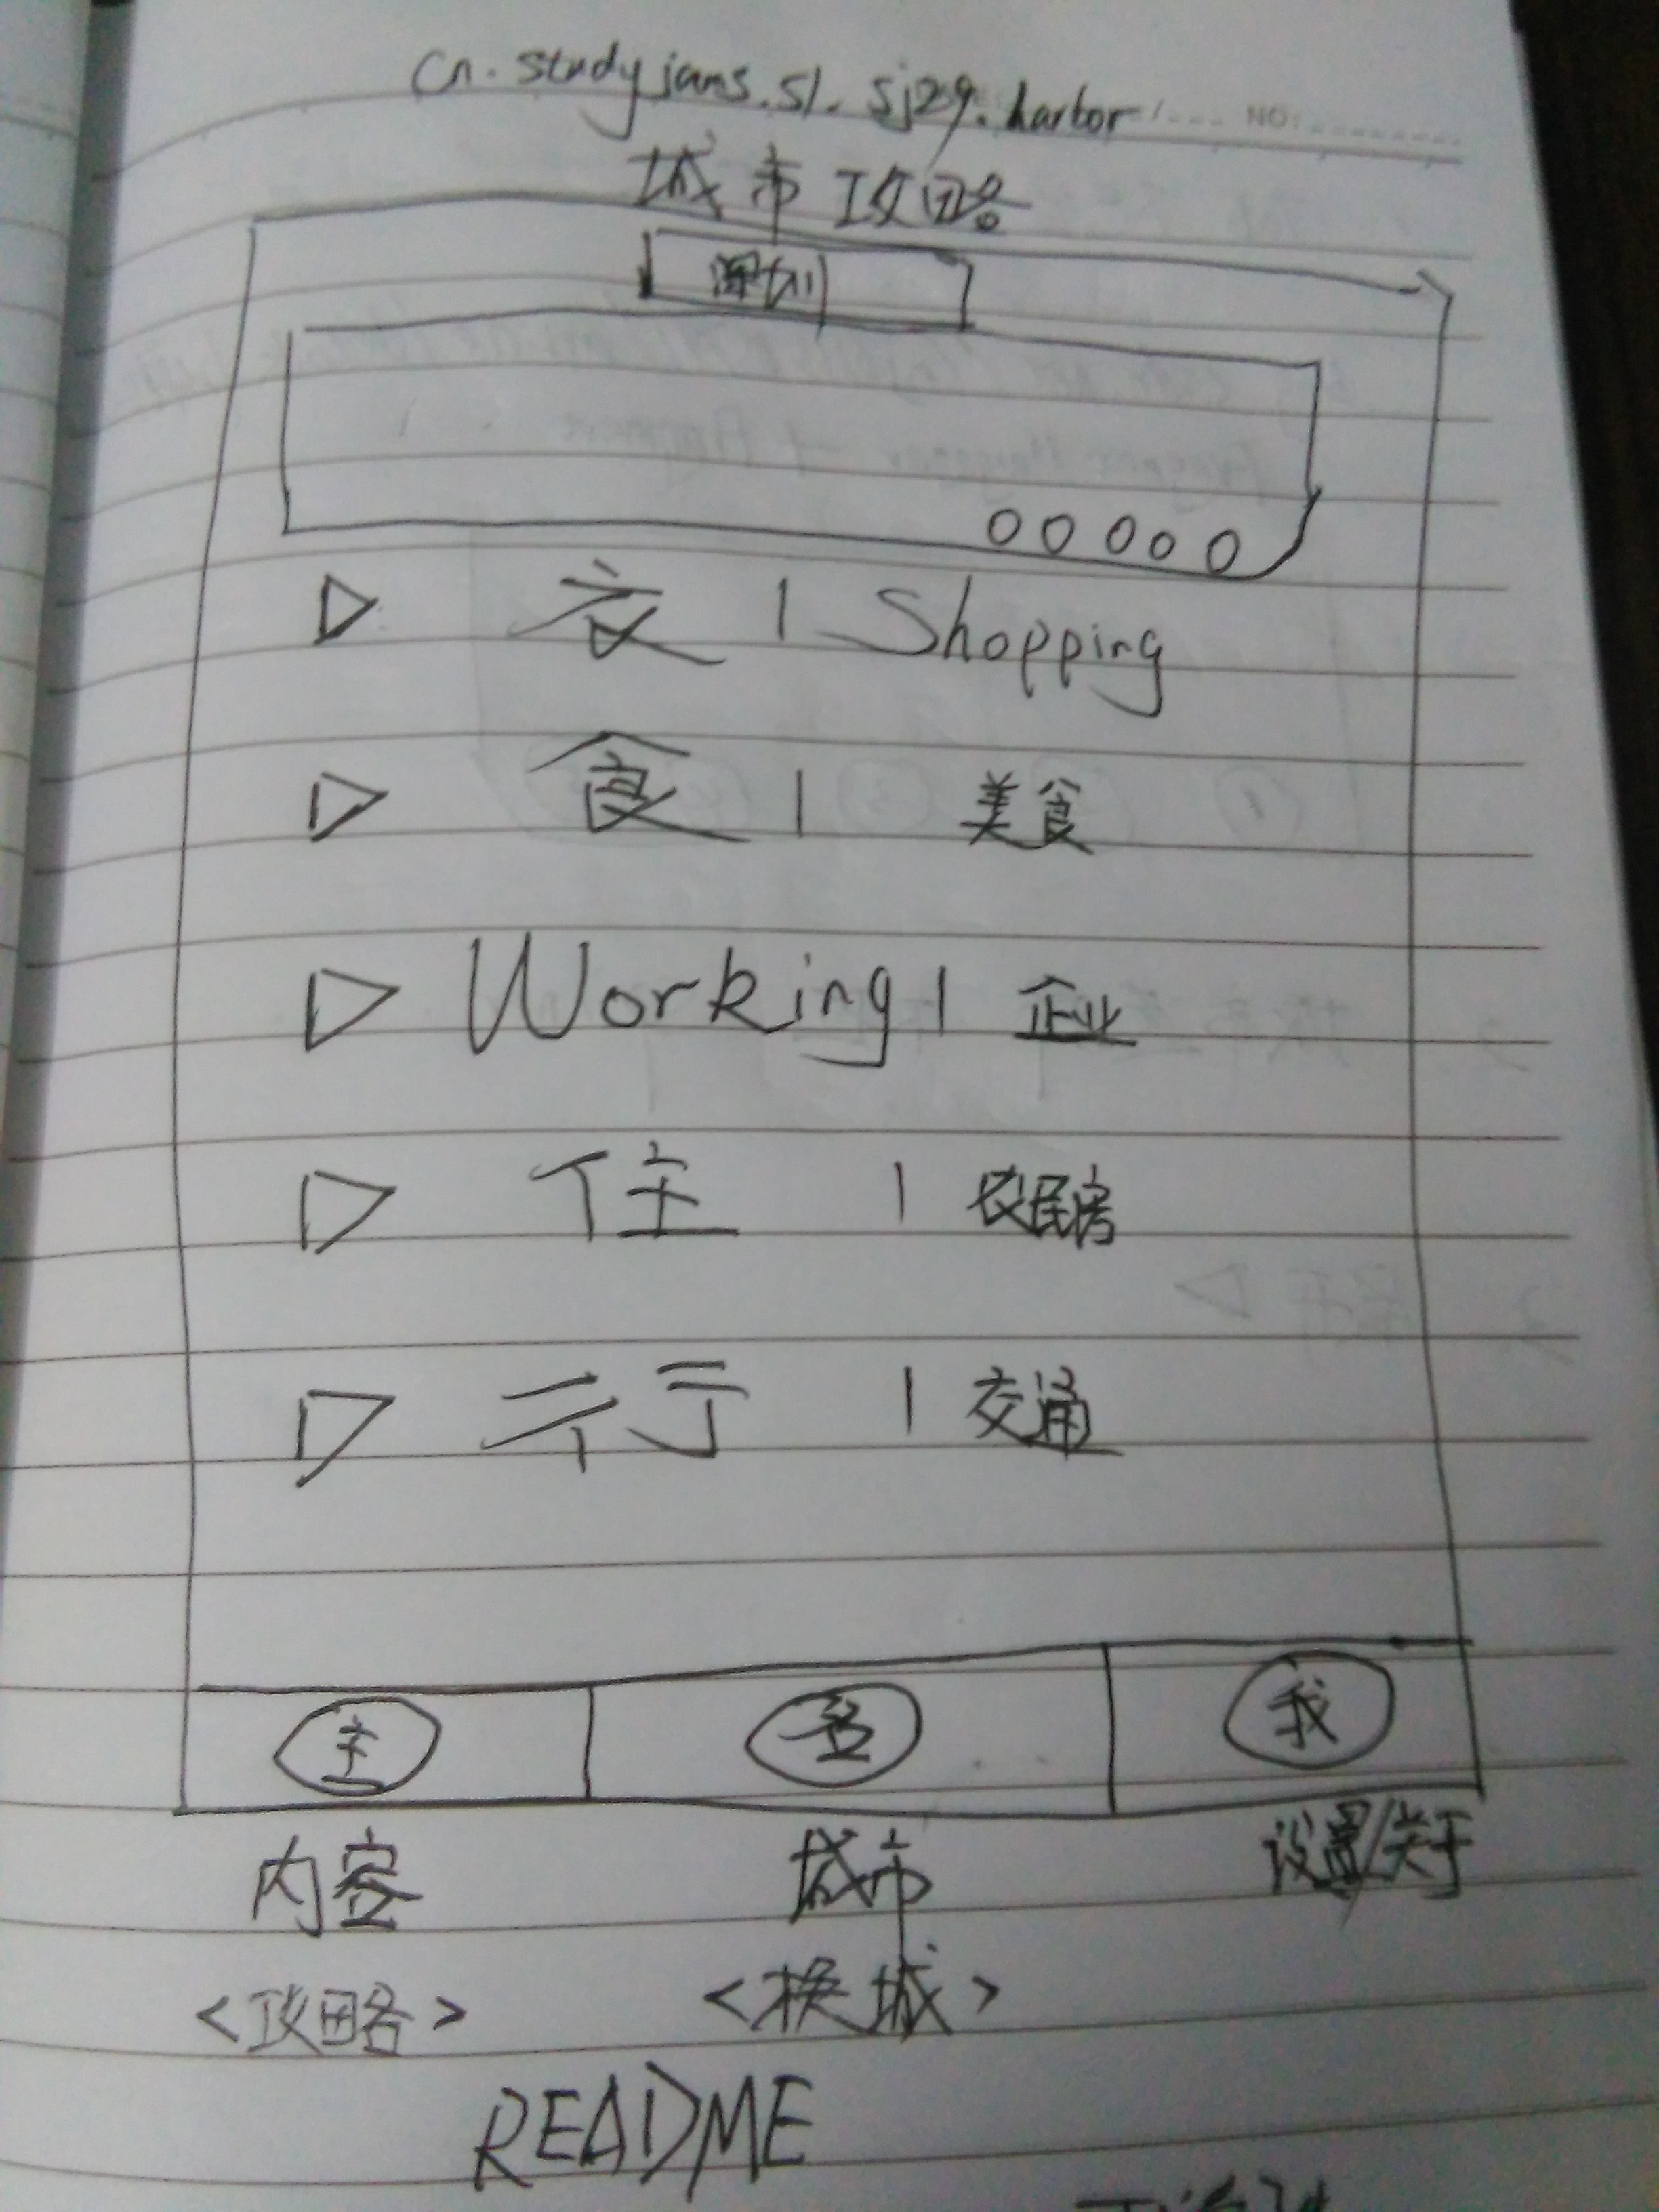 cn.studyjams.s1.sj29.harbor
NO:
城市攻略
深圳
衣 | Shopping
食 | 美食
Working | 企业
住 | 农民房
行 | 交通
主 我
内容 城市 设置/关于
<攻略> <换城>
README